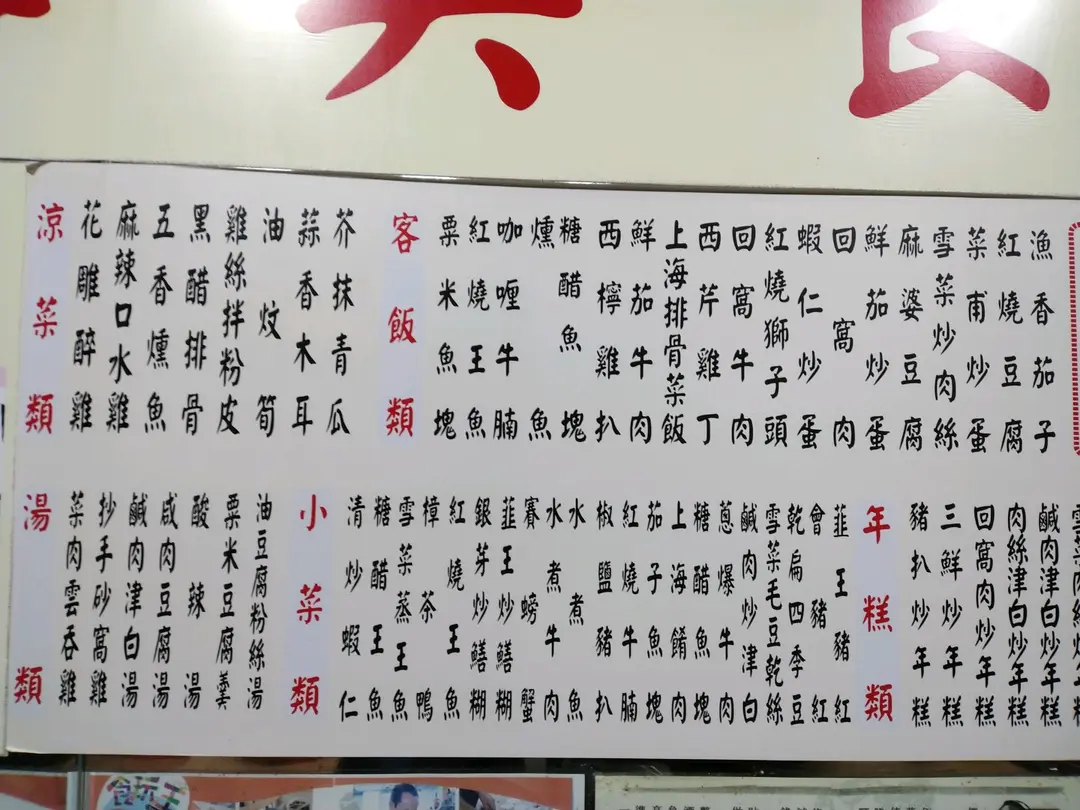 涼菜類
花雕醉雞
麻辣口水雞
五香燻魚
黑醋排骨
雞絲拌粉皮
油炆筍
蒜香木耳
芥抹青瓜
客飯類
粟米魚塊
紅燒王魚
咖喱牛腩
燻魚
糖醋魚塊
西檸雞扒
鮮茄牛肉
上海排骨菜飯
西芹雞丁
回窩牛肉
紅燒獅子頭
蝦仁炒蛋
回窩肉
鮮茄炒蛋
麻婆豆腐
雪菜炒肉絲
菜甫炒蛋
紅燒豆腐
漁香茄子
湯類
菜肉雲吞雞
抄手砂窩雞
鹹肉津白湯
咸肉豆腐湯
酸辣湯
粟米豆腐羹
油豆腐粉絲湯
小菜類
清炒蝦仁
糖醋王魚
雪菜蒸王魚
樟茶鴨
紅燒王魚
銀芽炒鱔糊
韮王炒鱔糊
賽螃蟹
水煮牛肉
水煮魚
椒鹽豬扒
紅燒牛腩
茄子魚塊
上海餚肉
糖醋魚塊
蔥爆牛肉
鹹肉炒津白
雪菜毛豆乾絲
乾扁四季豆
會豬紅
韮王豬紅
年糕類
豬扒炒年糕
三鮮炒年糕
回窩肉炒年糕
肉絲津白炒年糕
鹹肉津白炒年糕
食玩王